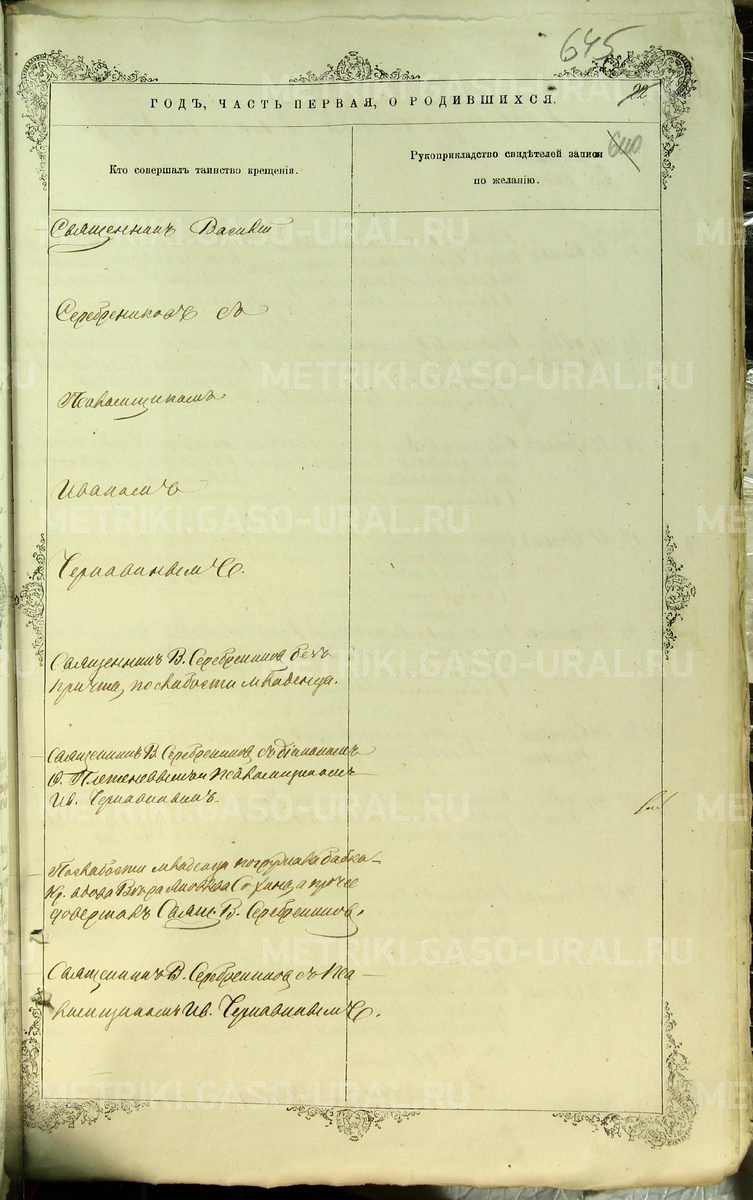 645
22
ГОДЪ, ЧАСТЬ ПЕРВАЯ, О РОДИВШИХСЯ.
Кто совершалъ таинство крещенія.
Рукоприкладство свидѣтелей записи
по желанію.
640
Священникъ Василій
Серебрениковъ съ
Псаломщикомъ
Иваномъ
Чернавинымъ.
Священникъ В. Серебренниковъ безъ
причта, по слабости младенца.
Священникъ В. Серебренниковъ съ діакономъ
Ѳ. Плетеневымъ и Псаломщикомъ
Ив. Чернавинымъ.
По слабости младенца погружала бабка
Кр. вдова а прочее
довершалъ Свящ. В. Серебренниковъ.
Священникъ В. Серебренниковъ съ Пса-
ломщикомъ Ив. Чернавинымъ.
METRIKI.GASO-URAL.RU